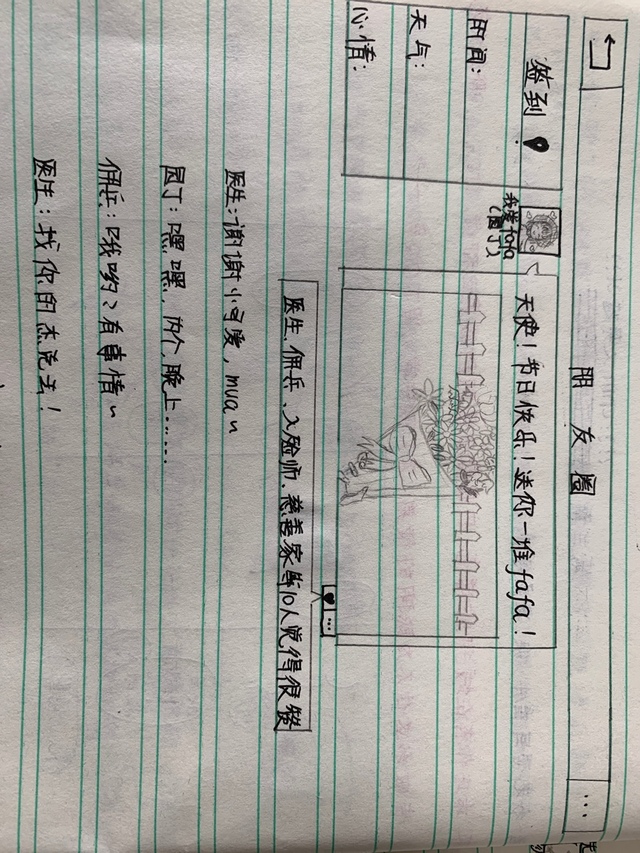 朋友圈
...
签到
时间:
天气:
心情:
我爱fafa
(园丁)
天使!节日快乐!送你一堆fafa!
...
医生、佣兵、入殓师、慈善家等10人觉得很赞
医生:谢谢小可爱,mua~
园丁:嘿嘿,两个,晚上......
佣兵:哦哟?有事情~
医生:找你的杰克去!